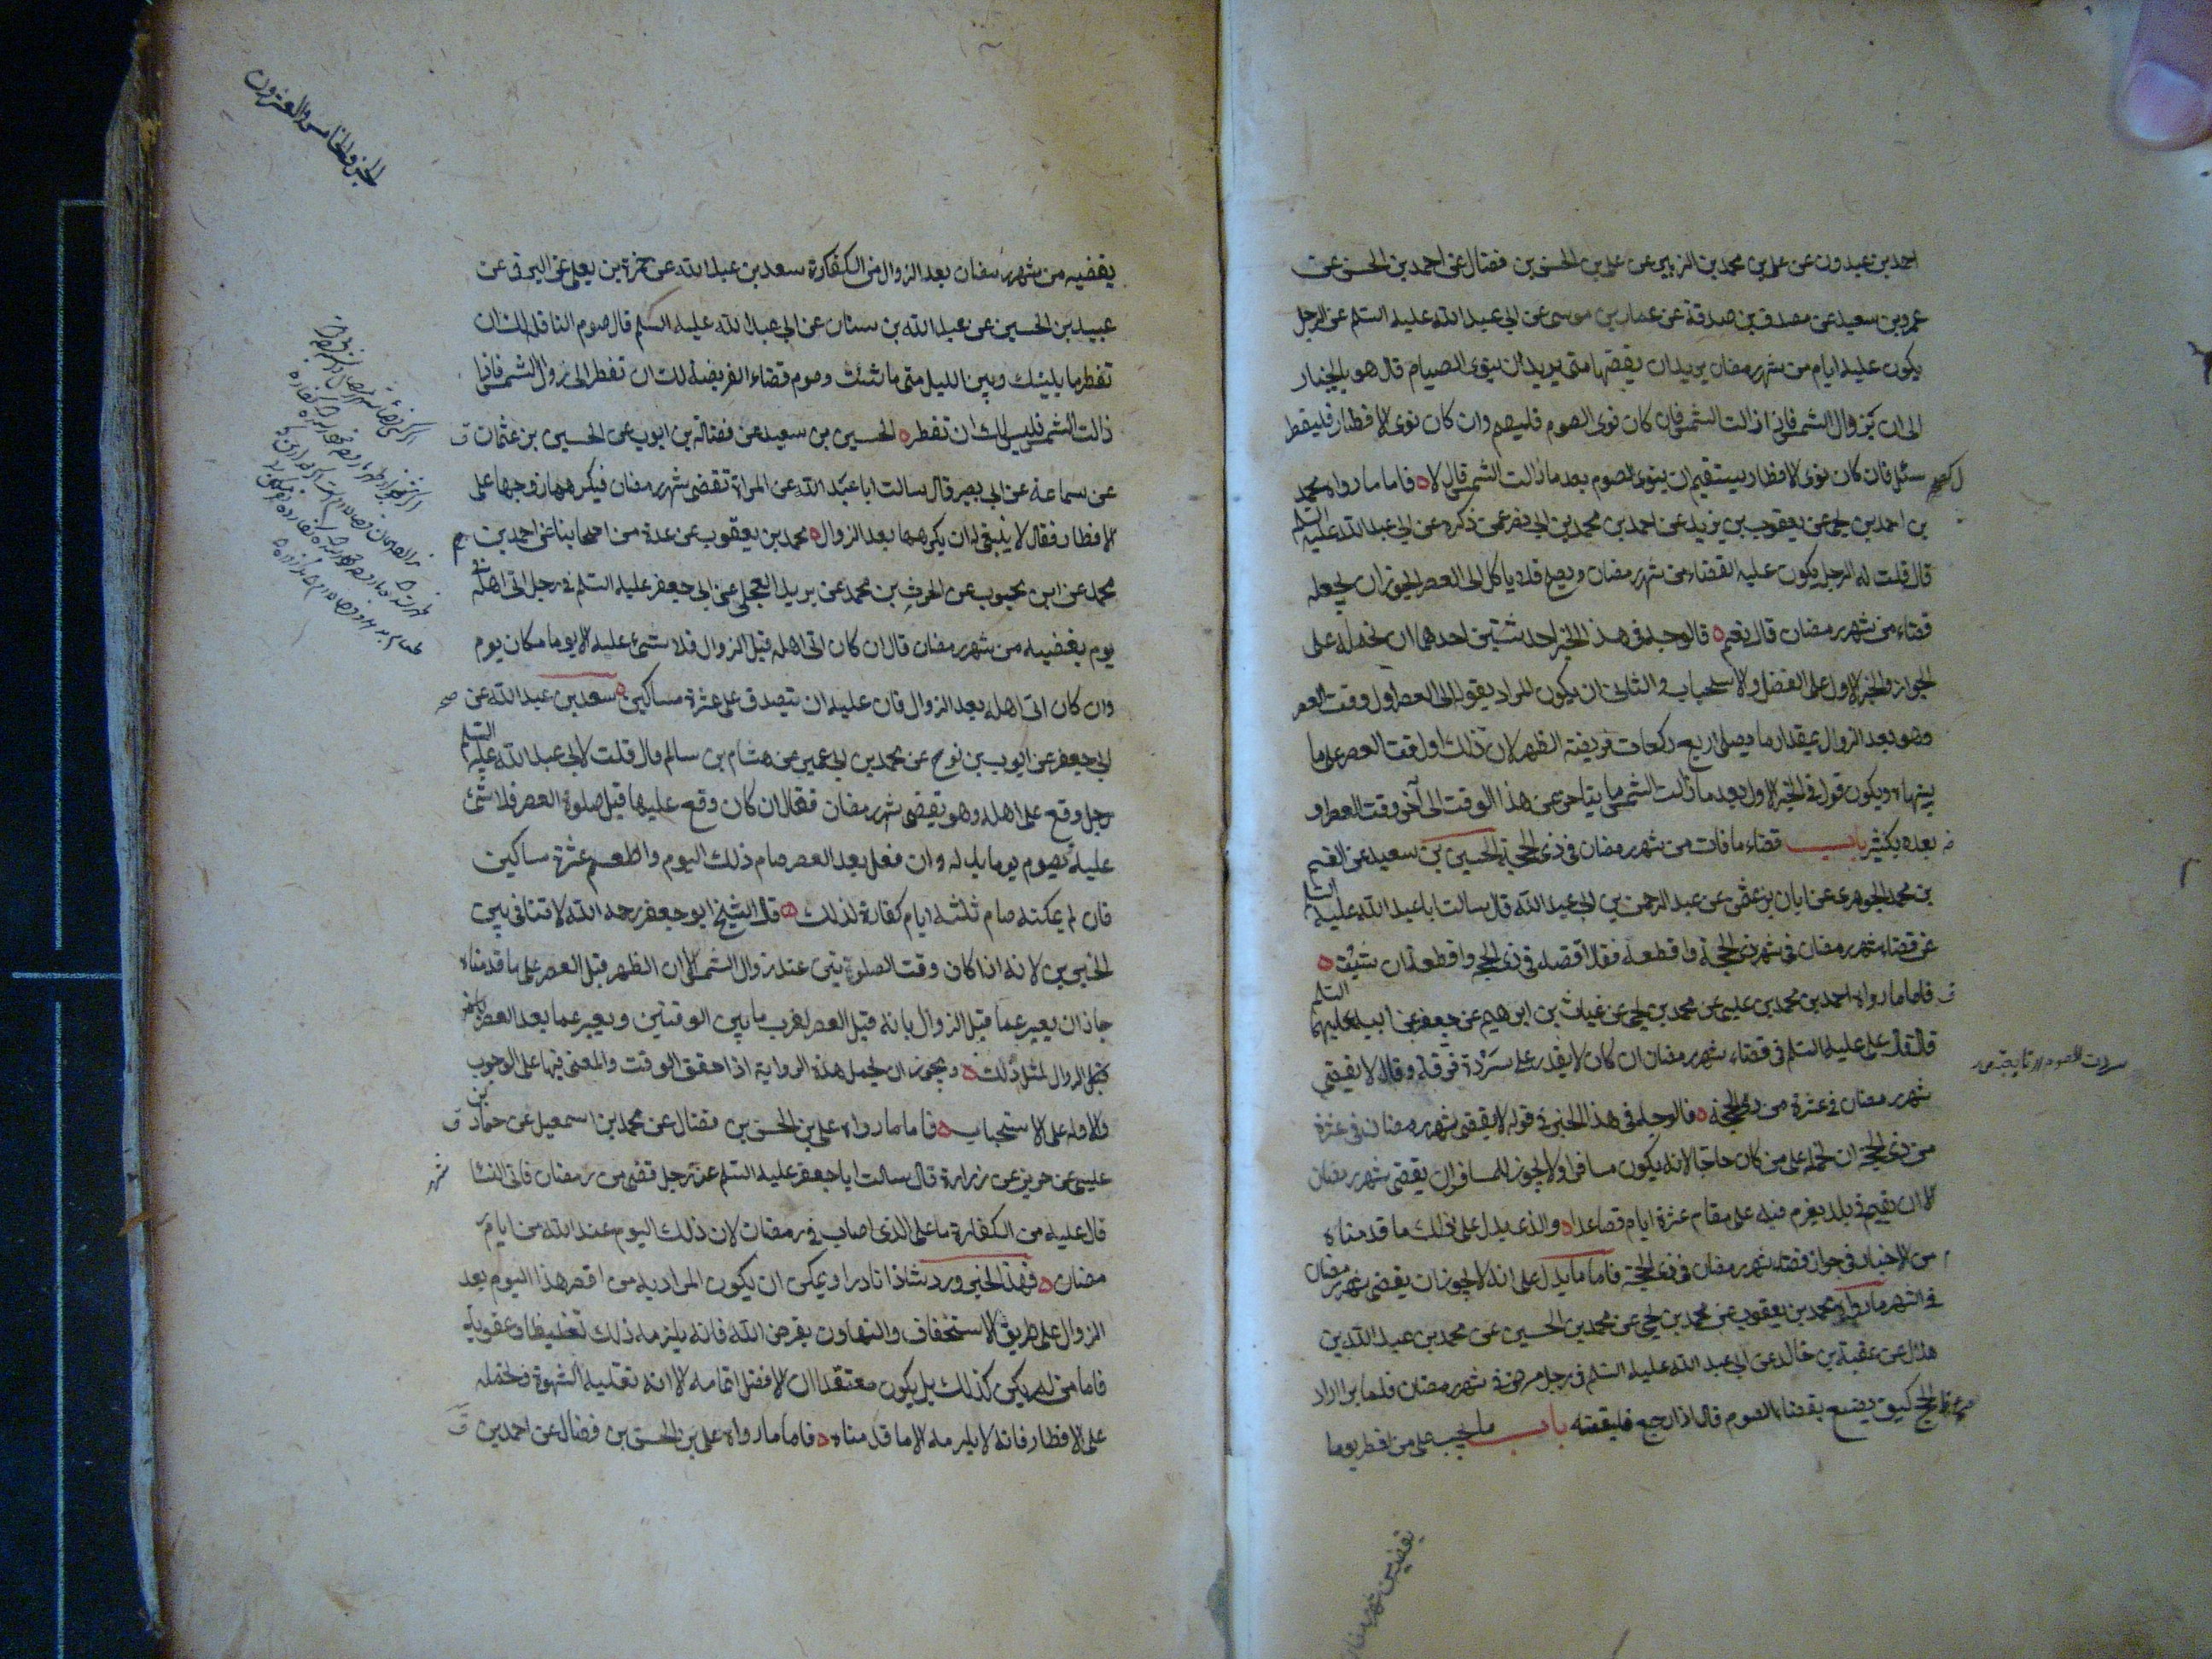 احمد بن عبدون عن علي بن محمد بن الزبير عن علي بن الحسن بن فضال عن احمد بن الحسن عن
عمرو بن سعيد عن مصدق بن صدقة عن عمار بن موسى عن ابي عبد الله عليه السلم عن الرجل
يكون عليه ايام من شهر رمضان يريد ان يقضيها متى يريد ان ينوى الصيام قال هو بالخيار
الى ان تزول الشمس فاذا زالت الشمس فان كان نوى الصوم فليصم وان كان نوى الافطار فليفطر
سئل فان كان نوى الافطار يستقيم ان ينوى الصوم بعد ما زالت الشمس قال لا فاما ما رواه محمد
بن احمد بن يحيى عن يعقوب بن يزيد عن احمد بن محمد بن ابي نصر عمن ذكره عن ابي عبد الله عليه السلم
قال قلت له الرجل يكون عليه القضاء من شهر رمضان ويصبح فلا ياكل الى العصر ايجوز ان يجعله
قضاء من شهر رمضان قال نعم فالوجه في هذا الخبر احد شيئين احدهما ان نحمله على
الجواز والخبر الاول على الفضل والاستحباب والثاني ان يكون المراد بقوله الى العصر اول وقت العصر
وهو بعد الزوال بمقدار ما يصلى اربع ركعات فريضة الظهر لان ذلك اول وقت العصر على ما
بيناه ويكون قوله في الخبر الاول بعد ما زالت الشمس ما يتاخر عن هذا الوقت الى آخر وقت العصر او
بعده بكثير باب قضاء ما فات من شهر رمضان في ذي الحجة الحسين بن سعيد عن القسم
بن محمد الجوهرى عن ابان بن عثمن عن عبد الرحمن بن ابي عبد الله قال سالت ابا عبد الله عليه السلم
عن قضاء شهر رمضان في شهر ذي الحجة واقطعه فقال اقضه في ذي الحجة واقطعه ان شئت
فاما ما رواه احمد بن محمد بن عيسى عن محمد بن يحيى عن غياث بن ابرهيم عن جعفر عن ابيه عليهما السلم
قال قال علي عليه السلم في قضاء شهر رمضان ان كان لا يقدر على سرده فرقه وقال لا يقضي
شهر رمضان في عشرة من ذي الحجة فالوجه في هذا الخبر في قوله لا يقضى شهر رمضان في عشرة
من ذي الحجة ان نحمله على من كان حاجا لانه يكون مسافرا ولا يجوز للمسافر ان يقضى شهر رمضان
الا ان يقيم في بلد يعزم فيه على مقام عشرة ايام فصاعدا والذي يدل على ذلك ما قدمناه
من الاخبار في جواز قضاء شهر رمضان في ذي الحجة فاما ما يدل على انه لا يجوز ان يقضى شهر رمضان
في السفر ما رواه محمد بن يعقوب عن محمد بن يحيى عن محمد بن الحسين عن محمد بن عبد الله بن
هلال عن عقبة بن خالد عن ابي عبد الله عليه السلم في رجل مرض في شهر رمضان فلما برا اراد
الحج كيف يصنع بقضاء الصوم قال اذا رجع فليقضه باب ما يجب على من افطر يوما
يقضيه من شهر رمضان
الجزو الخامس والعشرون
يقضيه من شهر رمضان بعد الزوال من الكفارة سعد بن عبد الله عن حمزة بن يعلى عن البرقى عن
عبيد بن الحسين عن عبد الله بن سنان عن ابي عبد الله عليه السلم قال صوم النافلة لك ان
تفطر ما بينك وبين الليل متى ما شئت وصوم قضاء الفريضة لك ان تفطر الى زوال الشمس فاذا
زالت الشمس فليس لك ان تفطر الحسين بن سعيد عن فضالة بن ايوب عن الحسين بن عثمان
عن سماعة عن ابي بصير قال سالت ابا عبد الله عن المراة تقضى شهر رمضان فيكرهها زوجها على
الافطار فقال لا ينبغي له ان يكرهها بعد الزوال محمد بن يعقوب عن عدة من اصحابنا عن احمد بن
محمد عن ابن محبوب عن الحرث بن محمد عن بريد العجلى عن ابي جعفر عليه السلم في رجل اتى اهله في
يوم يقضيه من شهر رمضان قال ان كان اتى اهله قبل الزوال فلا شيء عليه الا يوما مكان يوم
وان كان اتى اهله بعد الزوال فان عليه ان يتصدق على عشرة مساكين سعد بن عبد الله عن
ابي جعفر عن ايوب بن نوح عن محمد بن ابي عمير عن هشام بن سالم قال قلت لابي عبد الله عليه السلم
رجل وقع على اهله وهو يقضى شهر رمضان فقال ان كان وقع عليها قبل صلوة العصر فلا شئ
عليه يصوم يوما بدله وان فعل بعد العصر صام ذلك اليوم واطعم عشرة مساكين
فان لم يمكنه صام ثلثه ايام كفارة لذلك قال الشيخ ابو جعفر رحمه الله لا تنافى بين
الخبرين لانه اذا كان وقت الصلوتين عند زوال الشمس الا ان الظهر قبل العصر على ما قدمناه
جاز ان يعبر عما قبل الزوال بانه قبل العصر لقرب ما بين الوقتين ويعبر عما بعد العصر
قبل الزوال لمثل ذلك ويجوز ان يحمل هذه الرواية اذا حقق الوقت والمعنى فيها على الوجوب
والاوله على الاستحباب فاما ما رواه علي بن الحسن بن فضال عن محمد بن اسمعيل عن حماد بن
عيسى عن حريز عن زرارة قال سالت ابا جعفر عليه السلم عن رجل قضى من رمضان فاتى النسا
قال عليه من الكفارة ما على الذي اصاب في رمضان لان ذلك اليوم عند الله من ايام
رمضان فهذا الخبر ورد شاذا نادرا ويمكن ان يكون المراد به من افطر هذا اليوم بعد
الزوال على طريق الاستخفاف والتهاون بفرض الله فانه يلزمه ذلك تغليظا وعقوبة
فاما من لم يكن كذلك بل يكون معتقدا ان الافضل اتمامه الا انه تغلبه الشهوة فتحمله
على الافطار فانه لا يلزمه الا ما قدمناه فاما ما رواه علي بن الحسن بن فضال عن احمد بن